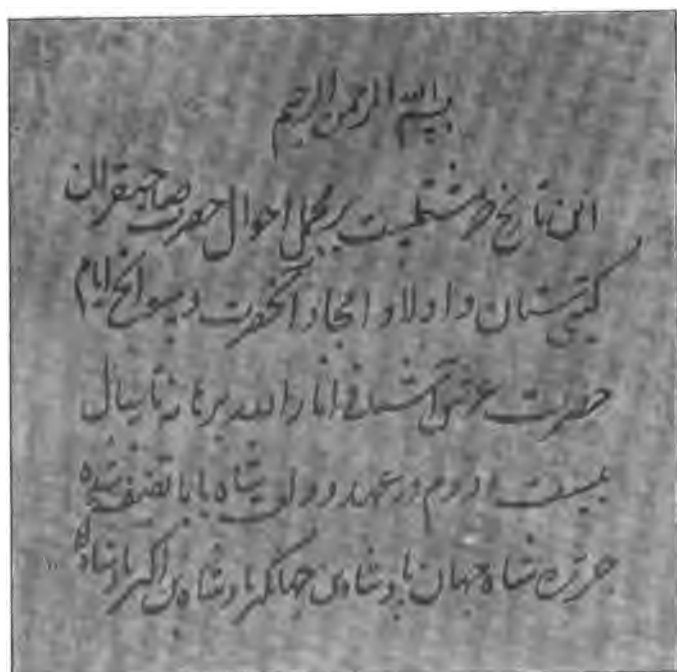 بسم الله الرحمن الرحیم
این تاریخ مشتملست بر مجمل احوال حضرت صاحبقران
گیتی ستان و اولاد امجاد آنحضرت و سوانح ایام
حضرت عرش آشیانی انار الله برهانه تا سال
بیست و دوم در عهد دولت شاه بابا تصنیف شده
حرره شاه جهان پادشاه بن جهانگیر پادشاه بن اکبر پادشاه